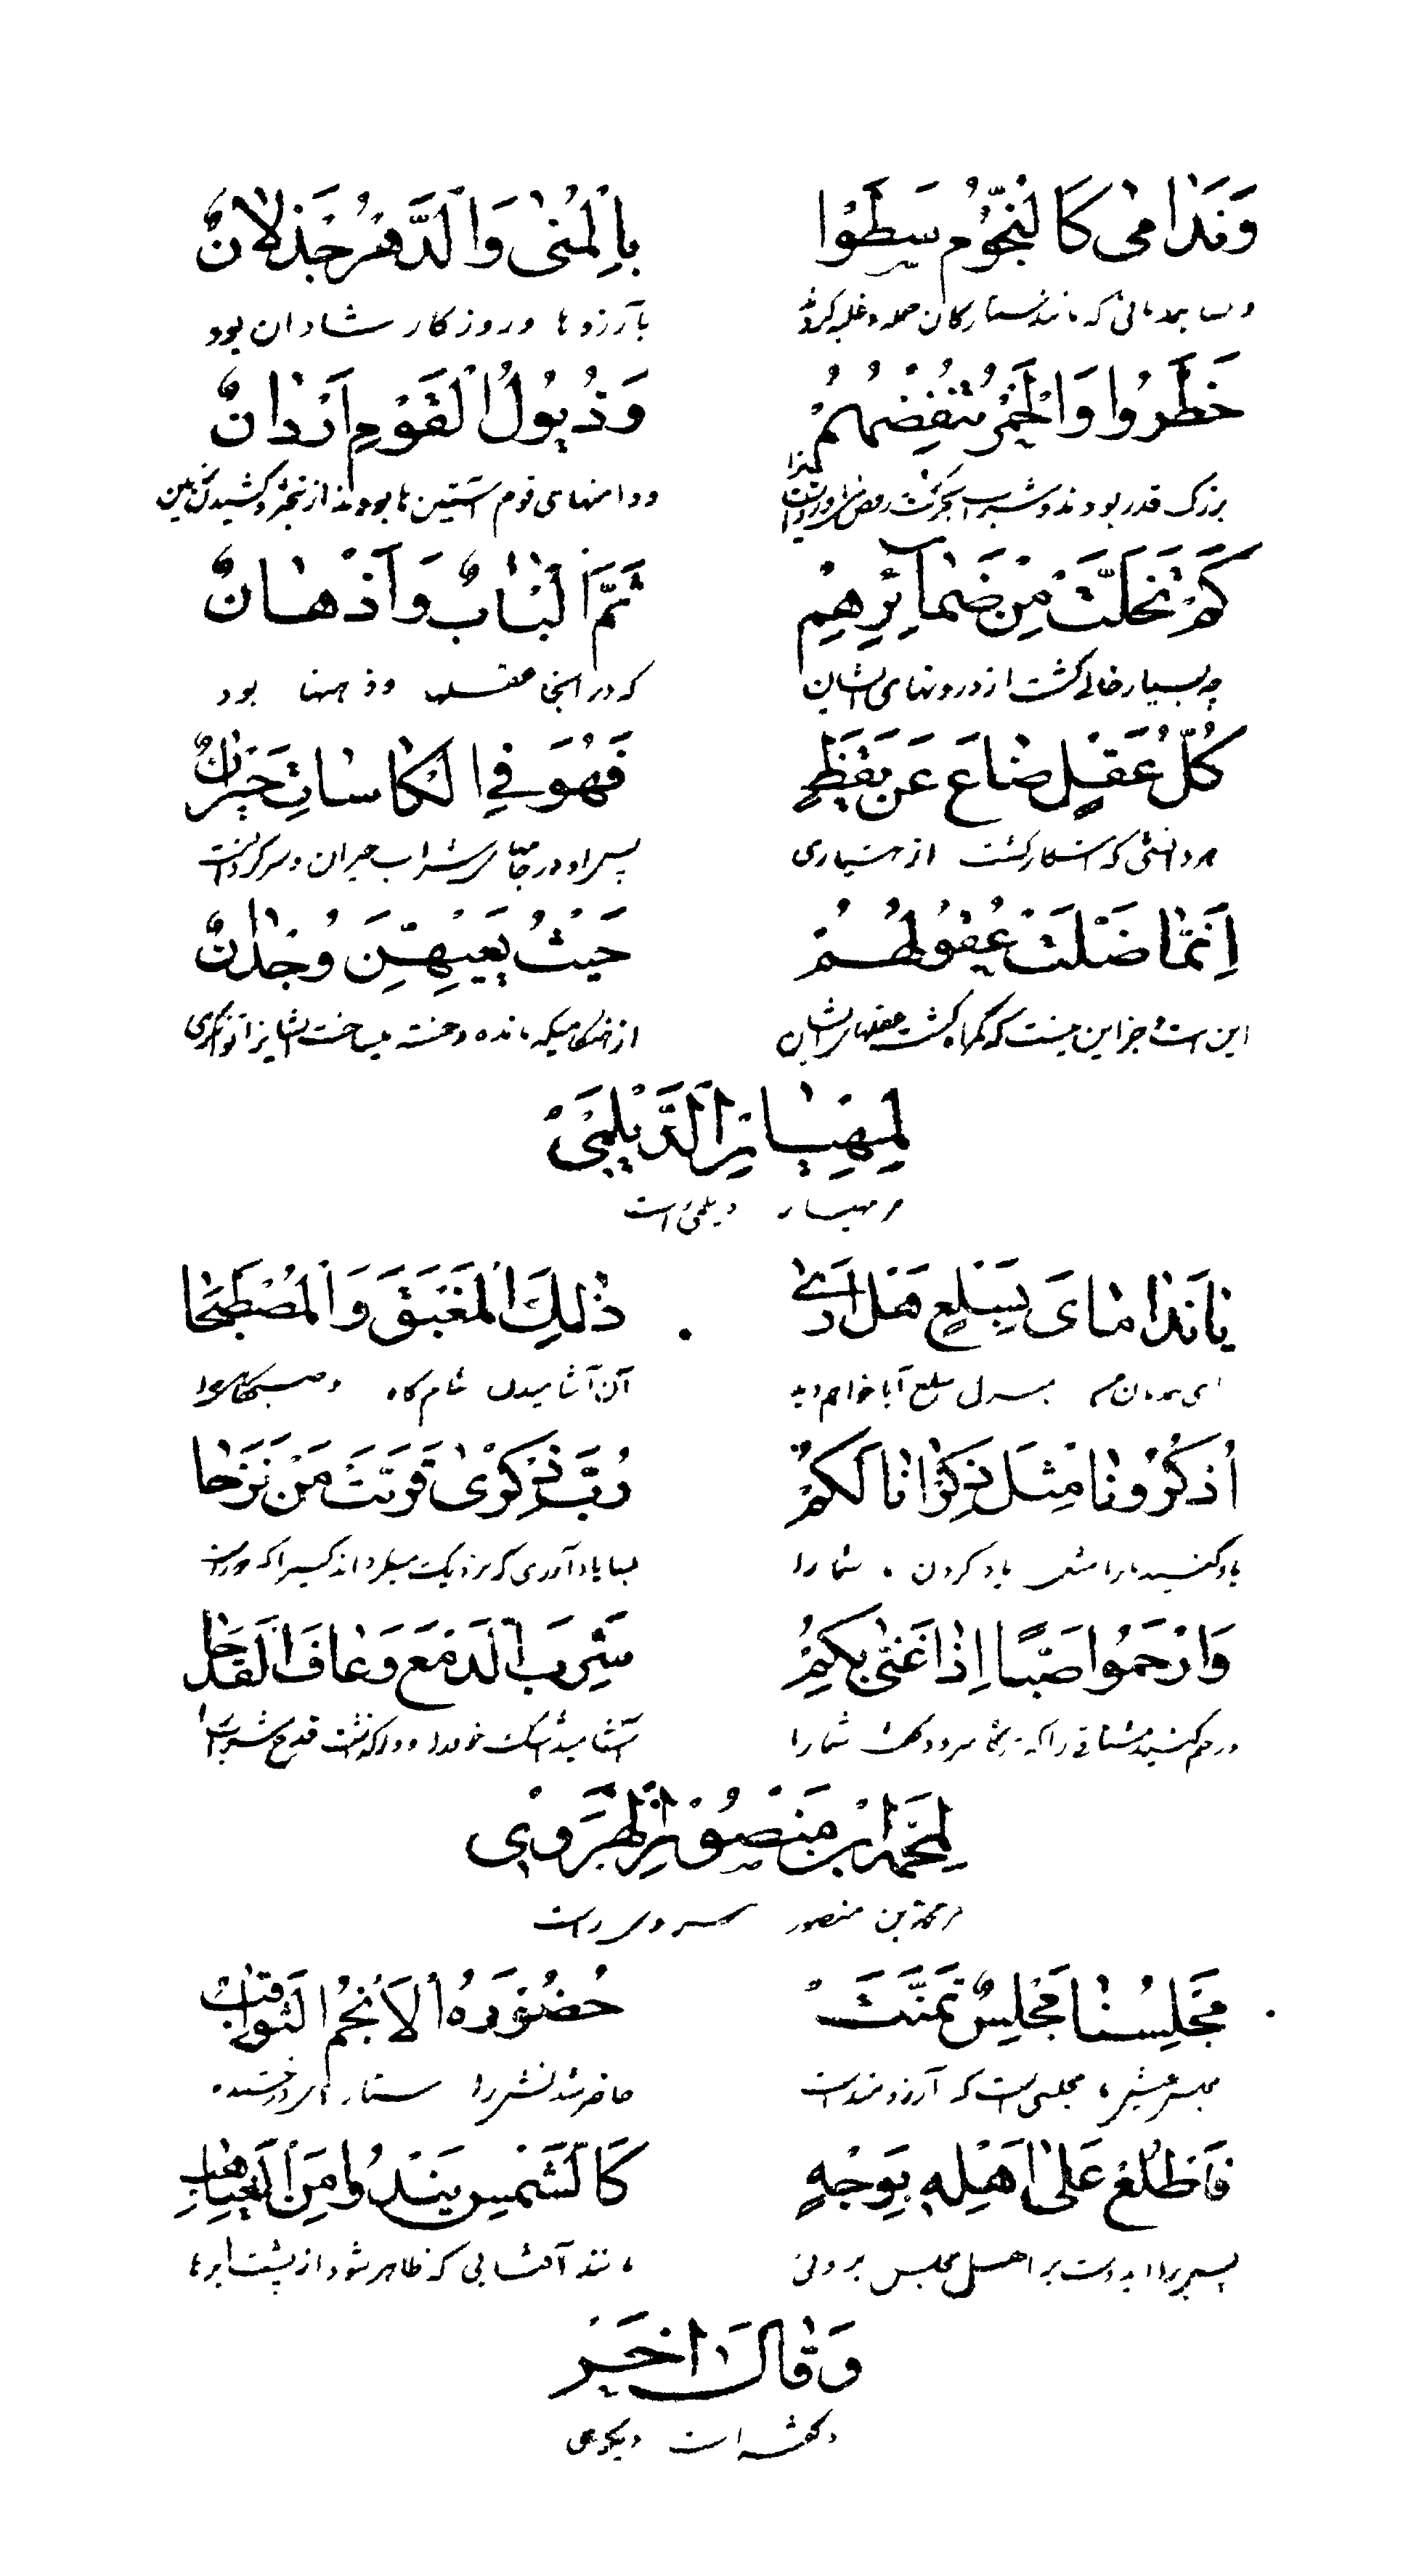 وَنَدامٰى كَالنُّجُوْمِ سَطَوْا بِالْمُنٰى وَالدَّهْرُ جَذْلانٌ
وبسا ندمانی که مانند ستارکان حمله و غلبه کردند بآرزوها وروزکار شادان بود
خَطَرُوا وَالْخَمْرُ تُنْفِضُهُمْ وَذُيُوْلُ الْقَوْمِ اَرْدانٌ
بزرک قدر بودند وشراب بحرکت ودامنهای قوم آستین ها بودند از
كَمْ تَخَلَّتْ مِنْ ضَمآئِرِهِمْ ثَمَّ اَلْبابٌ وَاَذْهانٌ
چه بسیار خالی کشت از درونهای ایشان که در اینجا عقلها وذهنها بود
كُلُّ عَقْلٍ ضاعَ عَنْ يَقَظٍ فَهُوَ فِي الْكاساتِ حَيْرانٌ
هر دانشی که آشکار کشت از هشیاری پس او در جامهای شراب حیران وسرکردانست
اِنَّمَا ضَلَّتْ عُقُولُهُمْ حَيْثُ يَعْيِهِنَّ وُجْدانٌ
این است وجز این نیست که کمراه کشت عقلهای ایشان از
لِمِهْيارِ الدَّيْلَمِيْ
مر مهیار دیلمی است
يا نَداماىَ بِسَلْعٍ هَلْ اَرٰى ذٰلِكَ الْمَغْبَقَ وَالْمُصْطَبَحا
ای ندمان من بمنزل سلع آیا خواهم دید آن آشامیدن شام کاه وصبحکاه را
اُذْكُرُوْنا مِثْلَ ذِكْرٰانا لَكُمْ رُبَّ ذِكْرٰى قَرَّبَتْ مَنْ نَزَحا
یاد کنید مارا مثل یاد کردن ما شما را بسا یاد آوری که نزدیک میکرداند کسیرا که دور است
وَارْحَمُوا صَبًّا اِذا غَنّٰى بِكُمْ شَرِبَ الدَّمْعَ وَعافَ الْقَدَحا
ورحم کنید مشتاقی را که هرکاه سرود کفت شما را آشامید اشک خود را ومکروه داشت قدح شراب را
لِمُحَمَّدِ ابْنِ مَنْصُوْرِ الْهَرَوِيْ
مر محمد بن منصور هروی راست
مَجْلِسُنا مَجْلِسٌ تَمَنَّتْ حُضُوْرَهُ الْاَنْجُمُ الثَّوَاقِبْ
مجلس عیش ما مجلسی است که آرزومند است حاضر شدنش را ستاره های درخشنده
فَاطْلُعْ عَلٰى اَهْلِهِ بِوَجْهٍ كَالشَّمْسِ يَبْدُوا مِنَ الْغَياهِبْ
پس برا ای دوست بر اهل مجلس بروئی مانند آفتابی که ظاهر شود از پشت ابرها
وَقالَ اخَرْ
وکفته است دیکری